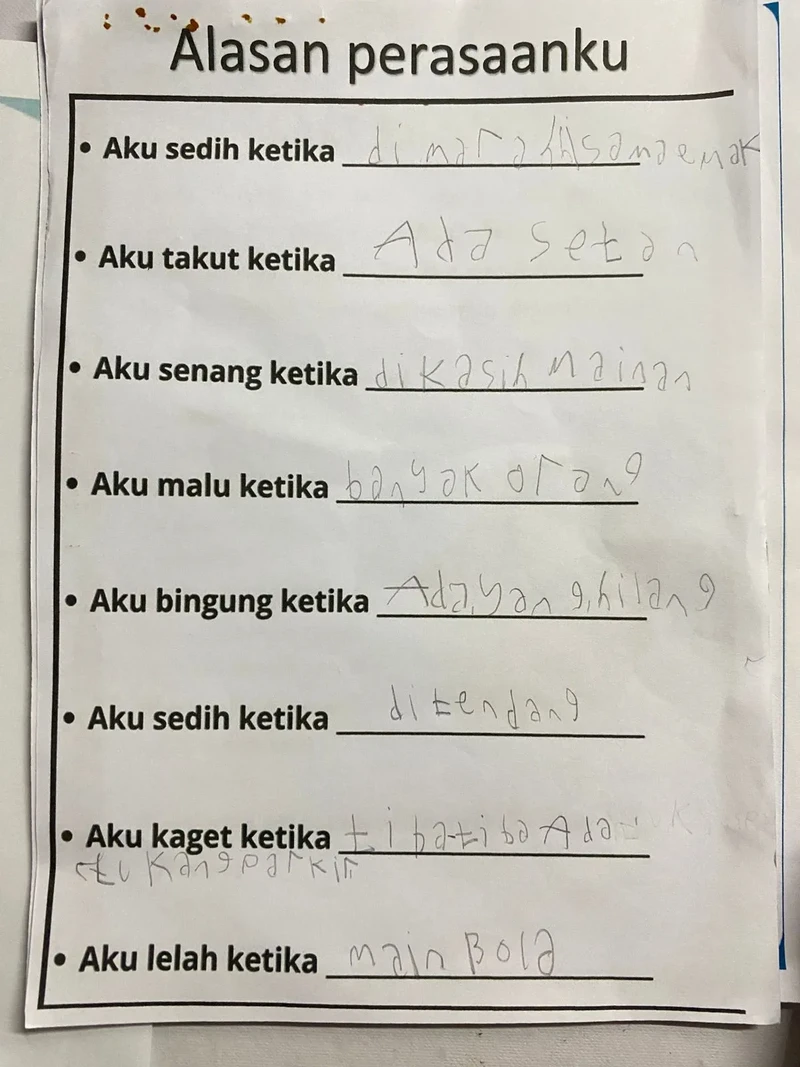 Alasan perasaanku
• Aku sedih ketika di marahi sama emak
• Aku takut ketika Ada setan
• Aku senang ketika di kasih mainan
• Aku malu ketika banyak orang
• Aku bingung ketika Ada yang hilang
• Aku sedih ketika di tendang
• Aku kaget ketika tiba-tiba Ada
tukang parkir
• Aku lelah ketika main Bola